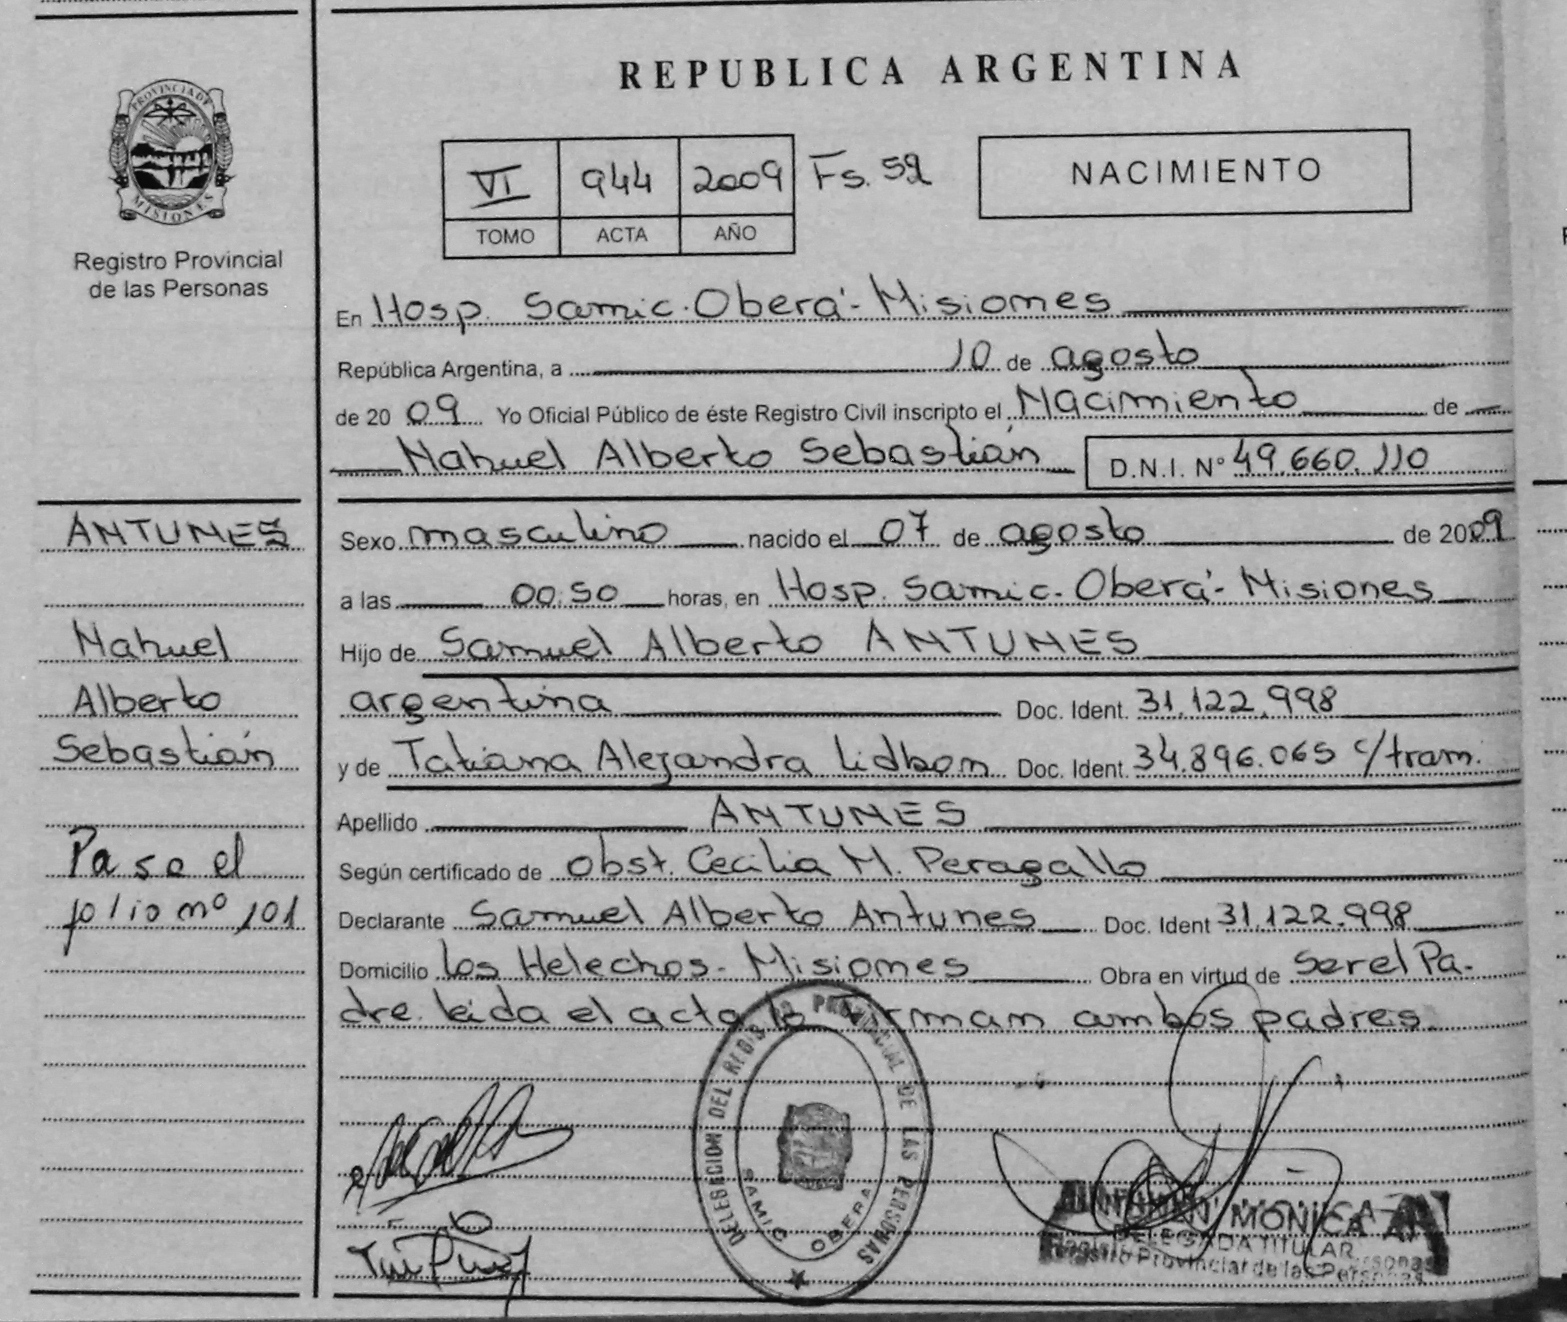 REPUBLICA ARGENTINA
PROVINCIA DE
MISIONES
Registro Provincial
de las Personas
VI 944 2009 Fs. 59
TOMO ACTA AÑO
NACIMIENTO
En Hosp. Samic. Oberá - Misiones
República Argentina, a 10 de agosto
de 2009 Yo Oficial Público de éste Registro Civil inscripto el Nacimiento de
Nahuel Alberto Sebastián D.N.I. Nº 49.660.110
ANTUNES
Nahuel
Alberto
Sebastián
Pase el
folio nº 101
Sexo masculino nacido el 07 de agosto de 2009
a las 00:50 horas, en Hosp. Samic. Oberá - Misiones
Hijo de Samuel Alberto ANTUNES
argentina Doc. Ident. 31.122.998
y de Tatiana Alejandra Lidbom Doc. Ident. 34.896.065 c/tram.
Apellido ANTUNES
Según certificado de obst. Cecilia M. Peragallo
Declarante Samuel Alberto Antunes Doc. Ident 31.122.998
Domicilio Los Helechos - Misiones Obra en virtud de Ser el Pa-
dre. leida el acta la firman ambos padres.
DELEGACION DEL REGISTRO PROVINCIAL DE LAS PERSONAS
SAMIC OBERA
MONICA
DELEGADA TITULAR
Registro Provincial de las Personas